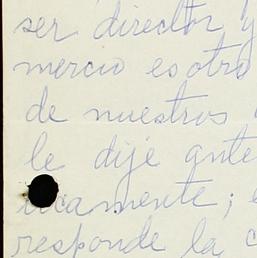 ser director y
mercio es otro
de nuestros
le dije ante
icamente; e
responde la c